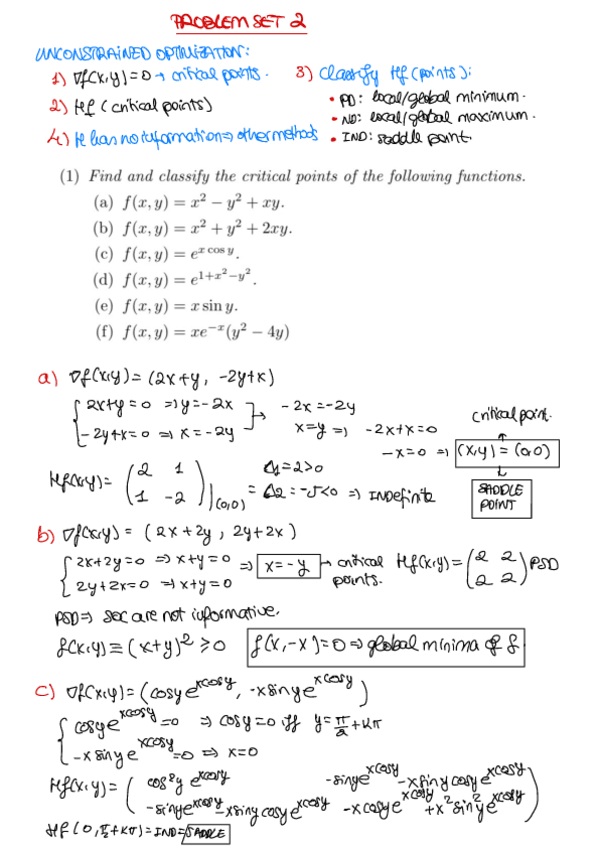 PROBLEM SET 2
UNCONSTRAINED OPTIMIZATION:
1) ∇f(x,y)=0 → critical points.
2) Hf (critical points)
3) Classify Hf (points):
• PD: local/global minimum.
• ND: local/global maximum.
• IND: saddle point.
4) If has no information ⇒ other methods
(1) Find and classify the critical points of the following functions.
(a) f(x, y) = x² − y² + xy.
(b) f(x, y) = x² + y² + 2xy.
(c) f(x, y) = e^{x cos y}.
(d) f(x, y) = e^{1+x²−y²}.
(e) f(x, y) = x sin y.
(f) f(x, y) = xe^{−x}(y² − 4y)
a) ∇f(x,y) = (2x+y, -2y+x)
{ 2x+y=0 ⇒ y=-2x
-2y+x=0 ⇒ x=-2y } → -2x=-2y
x=y ⇒ -2x+x=0
-x=0 ⇒ (x,y)=(0,0)
critical point.
SADDLE POINT
Hf(x,y) = ( 2 1
1 -2 ) |(0,0) = Δ1=2>0
Δ2=-5<0 ⇒ INDefinite
b) ∇f(x,y) = (2x+2y, 2y+2x)
{ 2x+2y=0 ⇒ x+y=0
2y+2x=0 ⇒ x+y=0 ⇒ x=-y → critical points.
Hf(x,y) = ( 2 2
2 2 ) PSD
PSD ⇒ SOC are not informative.
f(x,y) ≡ (x+y)² ≥ 0 f(x,-x)=0 ⇒ global minima of f
c) ∇f(x,y) = (cosy e^{xcosy}, -xsiny e^{xcosy})
{ cosy e^{xcosy} = 0 ⇒ cosy=0 iff y=π/2+kπ
-x siny e^{xcosy} = 0 ⇒ x=0
Hf(x,y) = ( cos²y e^{xcosy} -siny e^{xcosy} -x siny cosy e^{xcosy}
-siny e^{xcosy} -x siny cosy e^{xcosy} -x cosy e^{xcosy} +x² sin²y e^{xcosy} )
Hf (0, π/2+kπ) = IND = SADDLE